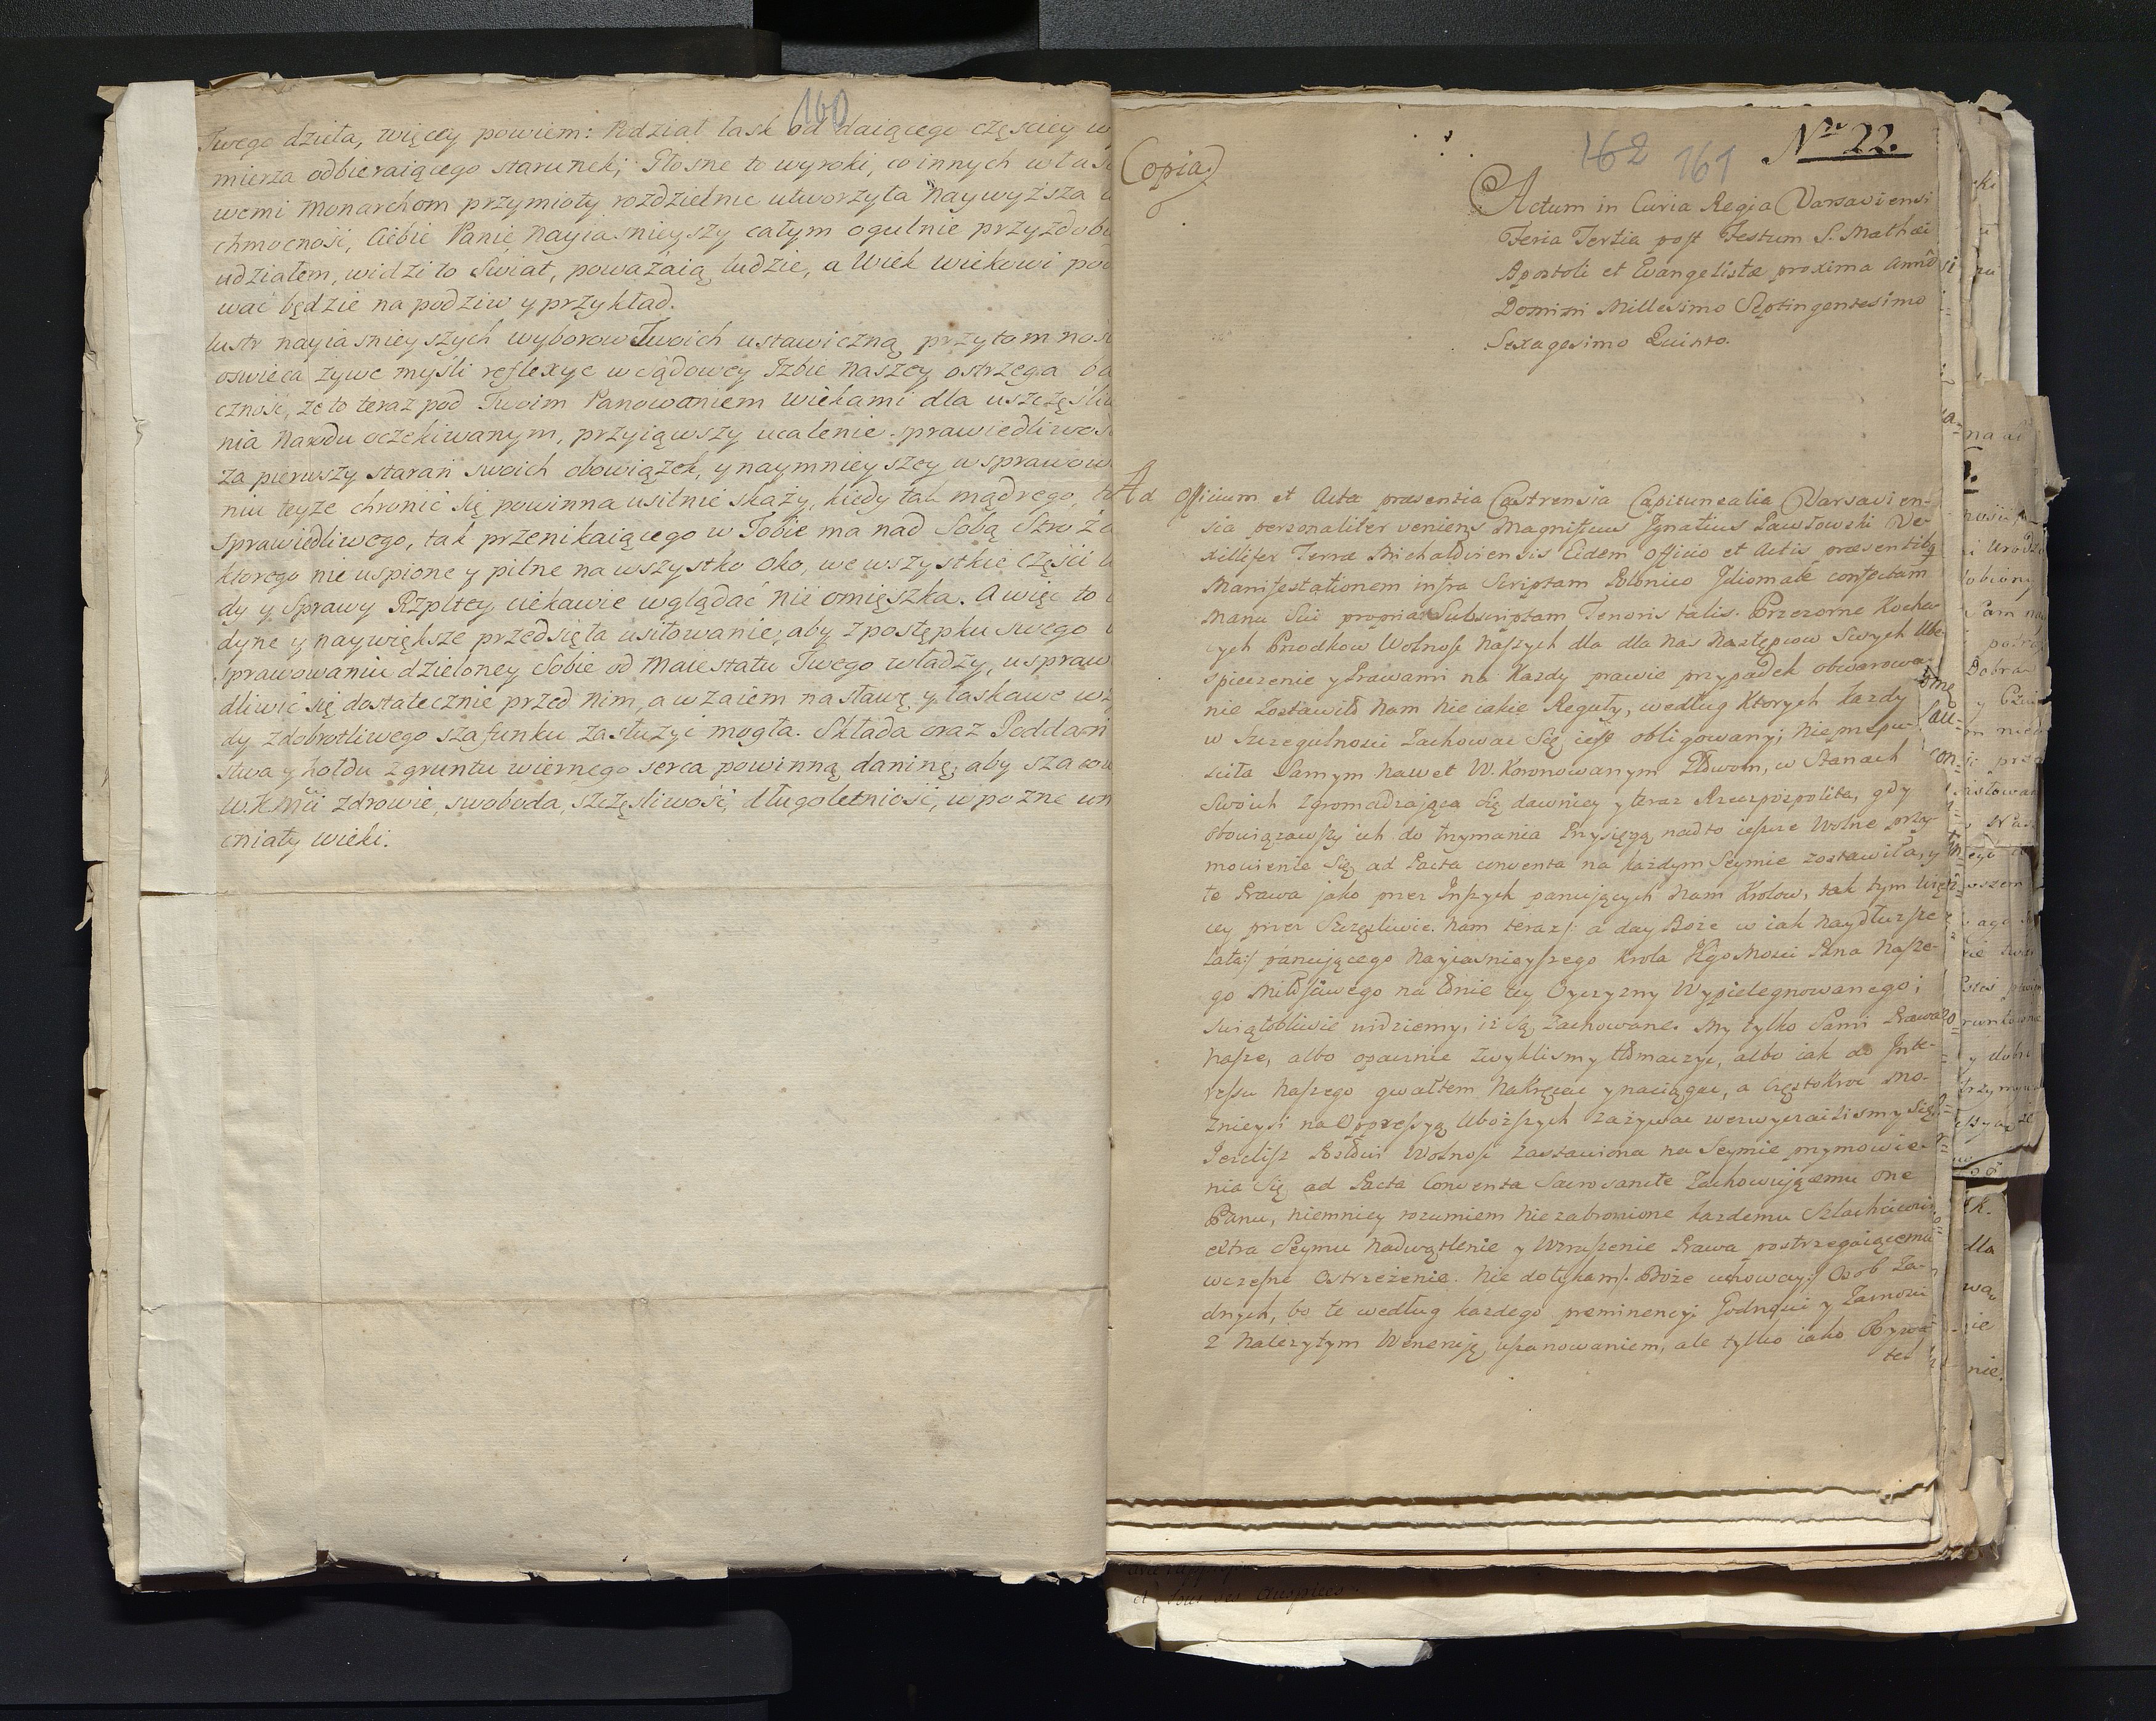 160
Twego dzieła, więcey powiem: Podział łask od daiącego częściey
mierza odbieraiącego starunek; Głosne to wyroki, co innych
wemi Monarchom przymioty rozdzielnie utworzyła Naywyższa
chmocność, Ciebie Panie Nayiasnieyszy całym ogulnie przyzdob
udziałem, widzi to Swiat, poważaią ludzie, a Wiek wiekowi po
wać będzie na podziw y przykład.
lustr nayiasnieyszych wyborow Twoich ustawiczną przytomnoś
oswieca żywe myśli reflexye w Sądowey Izbie Naszey ostrzega ba
czność, że to teraz pod Twoim Panowaniem wiekami dla uszczęśliw
nia Narodu oczekiwanym, przyiąwszy ucalenie sprawiedliwoś
za pierwszy starań swoich obowiązek, y naymnieyszey w sprawow
niu teyze chronić się powinna usilnie skazy, kiedy tak mądrego, ta
sprawiedliwego, tak przenikaiącego w Tobie ma nad Sobą Stroża
ktorego nie uspione y pilne na wszystko Oko, we wszystkie części
dy y Sprawy Rzpltey ciekawie wglądać nie omięszka. A więc to
dyne y naywiększe przedsięła usiłowanie, aby z postępku swego
sprawowaniu dzieloney Sobie od Maiestatu Twego władzy, uspraw
dliwić się dostatecznie przed nim, a wzaiem na sławę y łaskawe wz
dy z dobrotliwego szafunku zasłużyć mogła. Składa oraz Poddań
stwa y hołdu z gruntu wiernego serca powinną daninę, aby szacow
W.K.Mci zdrowie, swoboda, szczęśliwość, długoletniość, w pozne
cniały wieki.
162 161 Nro 22.
Copia.
Actum in Curia Regia Varsaviensi
Feria Tertia post Festum S. Mathæi
Apostoli et Evangelistæ proxima Anno
Domini Millesimo Septingentesimo
Sexagesimo Quinto.
Ad Officium et Acta præsentia Castrensia Capitanealia Varsavien-
sia personaliter veniens Magnificus Ignatius Pawłowski Ve-
xillifer Terræ Michaloviensis Eidem Officio et Actis præsentibq
Manifestationem infra Scriptam Polonico Idiomate confectam
Manu Sui propria Subscriptam Tenoris talis. Przezorne Kocha-
cych Przodkow Wolnosc Naszych dla dla Nas Następcow Swych Ube-
spieczenie y Prawami na Kazdy prawie przypadek obwarowa-
nie Zostawiło Nam Nieiakie Reguły, według Ktorych Kazdy
w Szczegulnosci Zachowac Się iest obligowany; Nie
sciła Samym Nawet W. Koronowanym Głowom, w Stanach
Swoich zgromadzaiąca Się dawniey y teraz Rzeczpospolita, gdy
Obowiązawszy ich do trzymania Przysięgą, nadto ieszcze Wolne przy-
mowienie Się ad Pacta Conventa na każdym Seymie zostawiła, y
te Prawa jako przez Inszych panujących Nam Krolow, tak tym Wię-
cey przez Szczęsliwie Nam teraz/: a day Boże w iak Naydłuzsze
Lata:/ panującego Nayiasnieyszego Krola JKgoMosci Pana Nasze-
go Miłościwego na łonie tey Oyczyzny Wypielegnowanego;
swiątobliwie widziemy, iż są Zachowane. My tylko Sami Prawa
Nasze, albo opacznie Zwyklismy tłomaczyc, albo iak do Inte-
ressu Naszego gwałtem Nakręcac y naciągac, a częstokroc Mo-
znieysi na Oppressyą Uboższych zażywac wezwyczailismy Się,
Jezelisz Posłom Wolnosc Zastawiona na Seymie przymowie-
nia Się ad Pacta Conventa Sacrosancte Zachowującemu one
Panu, niemniey rozumiem Nie zabronione kazdemu Szlachcicowi
extra Seymu Nadwątlenie y Wzruszenie Prawa postrzegaiącemu
wczesne Ostrzeżenie. Nie dotykam/: Boże uchoway:/ Osob Ża-
dnych, bo te według kazdego preminencyi Godnosci y Zacnosci
z Należytym Weneruję uszanowaniem, ale tylko iako Obywa-
tel